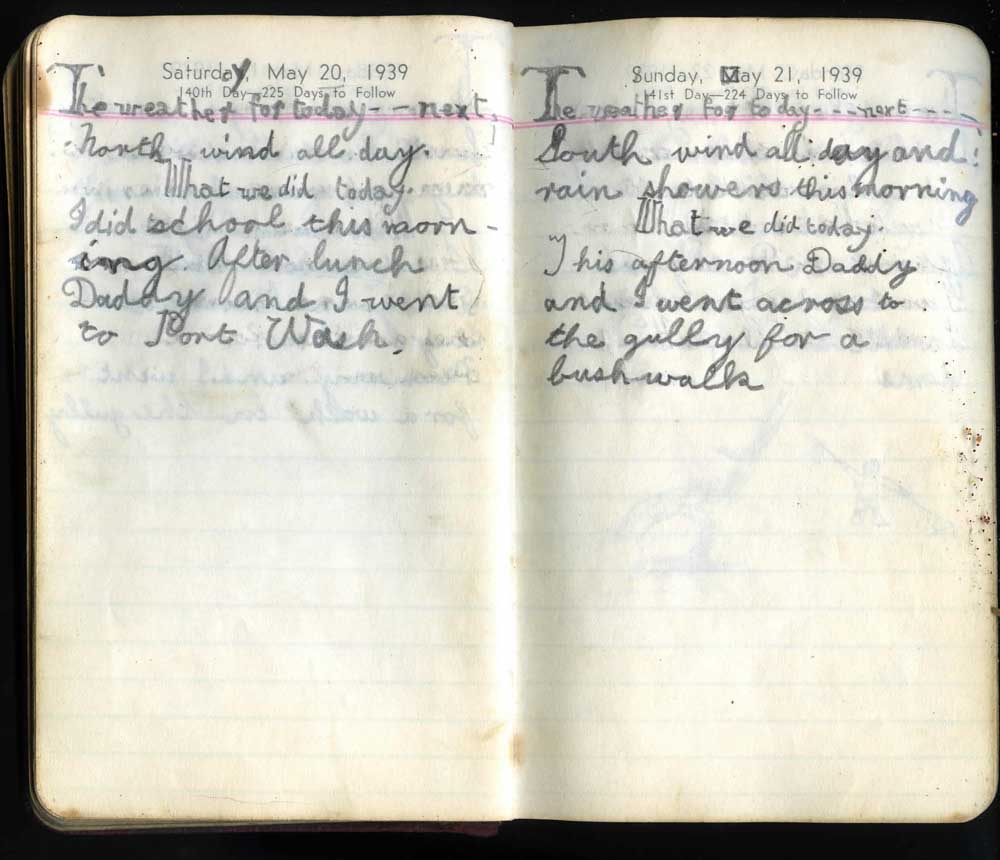 Saturday, May 20, 1939
140th Day—225 Days to Follow
The weather for today - - next,
North wind all day.
What we did today.
I did school this morn-
ing. After lunch
Daddy and I went
to Port Wash.
Sunday, May 21, 1939
141st Day—224 Days to Follow
The weather for today - - - next - - -
South wind all day and
rain showers this morning
What we did today.
This afternoon Daddy
and I went across to
the gully for a
bush walk